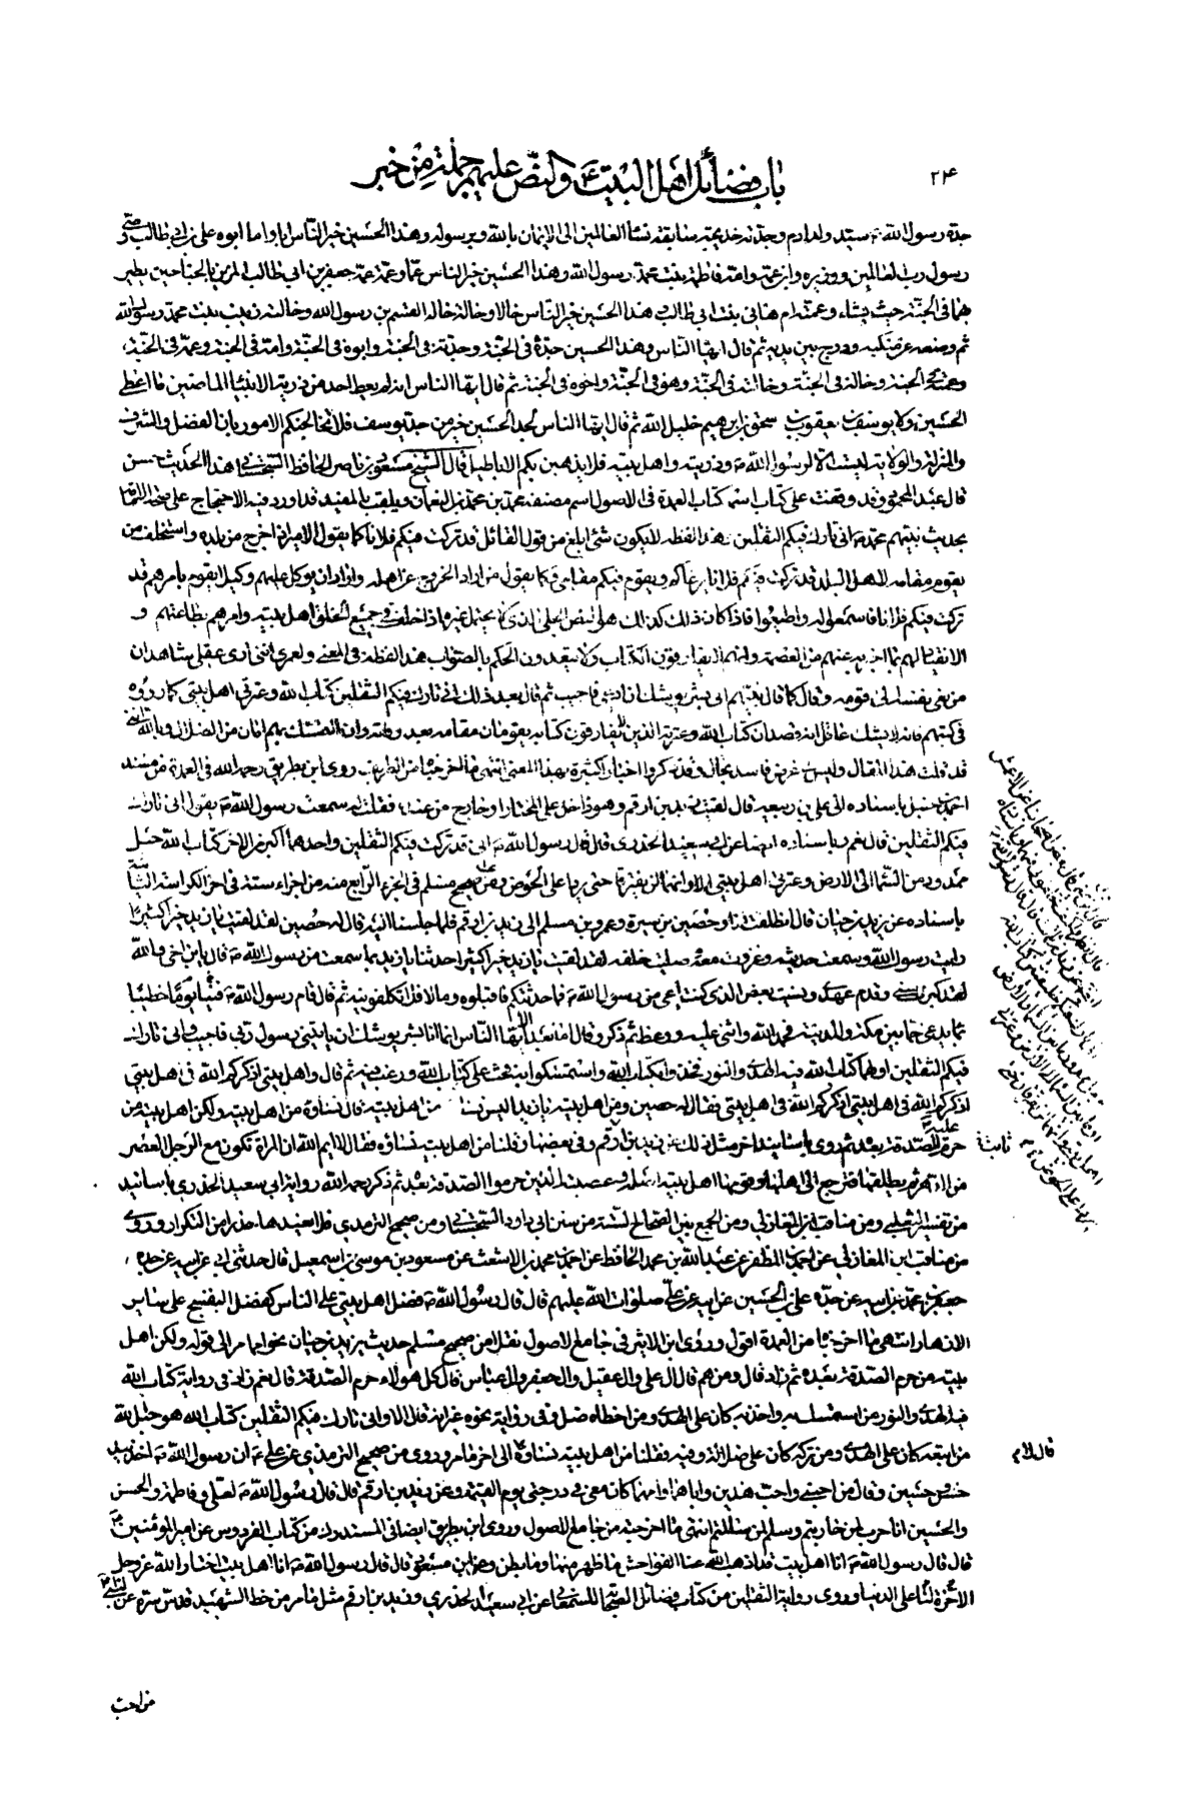 ٢٤
باب فضائل اهل البيت ع والنص عليهم جملة من خبر
جده رسول الله ص سيد ولد ادم وجدته خديجة سابقة نساء العالمين الى الايمان بالله وبرسوله وهذا الحسين خير الناس ابا واما ابوه علي بن ابي طالب وصي
رسول رب العالمين ووزيره وابن عمه وامه فاطمة بنت محمد رسول الله وهذا الحسين خير الناس عما وعمة عمه جعفر بن ابي طالب المزين بالجناحين يطير
بهما في الجنة حيث يشاء وعمته ام هاني بنت ابي طالب وهذا الحسين خير الناس خالا وخالة خاله القسم بن رسول الله وخالته زينب بنت محمد رسول الله
ثم وضعه عن منكبه ودرج بين يديه ثم قال ايها الناس وهذا الحسين جده في الجنة وجدته في الجنة وابوه في الجنة وامه في الجنة وعمه في الجنة
وعمته في الجنة وخاله في الجنة وخالته في الجنة وهو في الجنة واخوه في الجنة ثم قال ايها الناس انه لم يعط احد من ذرية الانبياء الماضين ما اعطي
الحسين ولا يوسف بن يعقوب بن اسحق بن ابرهيم خليل الله ثم قال ايها الناس لجد الحسين خير من جد يوسف فلا تخالجنكم الامور بان الفضل والشرف
والمنزلة والولاية ليست الا لرسول الله ص وذريته واهل بيته فلا يذهبن بكم الاباطيل قال الشيخ مسعود بن ناصر الحافظ السجستاني هذا الحديث حسن
قال عبد المحمود وقد وقفت على كتاب اسمه كتاب العمدة في الاصول اسم مصنفه محمد بن محمد بن النعمان ويلقب بالمفيد قد اورد فيه الاحتجاج على صحة الامامة
بحديث نبيهم محمد ص اني تارك فيكم الثقلين هذا لفظه لا يكون شئ ابلغ من قول القائل قد تركت فيكم فلانا كما يقول الامير اذا خرج من بلده واستخلف من
يقوم مقامه لاهل البلد قد تركت فيكم فلانا يرعاكم ويقوم فيكم مقامي وكما يقول من اراد الخروج عن اهله واراد ان يوكل عليهم وكيلا يقوم بامرهم قد
تركت فيكم فلانا فاسمعوا له واطيعوا فاذا كان ذلك كذلك فهو النص الجلي الذي لا يحتمل غيره اذ خلف في جميع الخلق اهل بيته وامرهم بطاعتهم و
الانقياد لهم بما اخبر به عنهم من العصمة وانهم لا يفارقون الكتاب ولا يتعدون الحكم بالصواب هذا لفظه في المعنى ولعمري انني ارى عقلي شاهدا ان
من نعى نفسه الى قومه وقال كما قال نبيهم اني بشر يوشك ان ادعى فاجيب ثم قال بعد ذلك اني تارك فيكم الثقلين كتاب الله وعترتي اهل بيتي كما رووه
في كتبهم فانه لا يشك عاقل انه قصد ان كتاب الله وعترته الذين لا يفارقون كتابه يقومان مقامه بعد وفاته وان التمسك بهم امان من الضلال وبالله انني
قد قلت هذا المقال وليس لي غرض فاسد بحال وقد ذكروا اخبارا كثيرة بهذا المعنى انتهى ما اخرجناه من الطرائف روى ابن بطريق رحمه الله في العمدة من مسند
احمد بن حنبل باسناده الى علي بن ربيعة قال لقيت زيد بن ارقم وهو داخل على المختار او خارج من عنده فقلت له سمعت رسول الله ص يقول اني تارك
فيكم الثقلين قال نعم وباسناده ايضا عن ابي سعيد الخدري قال قال رسول الله ص اني قد تركت فيكم الثقلين واحدهما اكبر من الاخر كتاب الله حبل
ممدود من السماء الى الارض وعترتي اهل بيتي الا وانهما لن يفترقا حتى يردا علي الحوض ومن صحيح مسلم في الجزء الرابع منه من اجزاء ستة في اخر الكراسة الثانية
باسناده عن يزيد بن حيان قال انطلقت انا وحصين بن سبرة وعمرو بن مسلم الى زيد بن ارقم فلما جلسنا اليه قال له حصين لقد لقيت يا زيد خيرا كثيرا
رايت رسول الله وسمعت حديثه وغزوت معه وصليت خلفه لقد لقيت يا زيد خيرا كثيرا حدثنا يا زيد بما سمعت من رسول الله ص قال يا بن اخي والله
لقد كبرت سني وقدم عهدي ونسيت بعض الذي كنت اعي من رسول الله ص فما حدثتكم فاقبلوه وما لا فلا تكلفونيه ثم قال قام رسول الله ص فينا يوما خطيبا
بما يدعى خما بين مكة والمدينة فحمد الله واثنى عليه ووعظ ثم ذكر وقال اما بعد الا ايها الناس انما انا بشر يوشك ان ياتيني رسول ربي فاجيب واني تارك
فيكم الثقلين اولهما كتاب الله فيه الهدى والنور فخذوا بكتاب الله واستمسكوا به فحث على كتاب الله ورغب فيه ثم قال واهل بيتي اذكركم الله في اهل بيتي
اذكركم الله في اهل بيتي اذكركم الله في اهل بيتي فقال له حصين ومن اهل بيته يا زيد اليس نساؤه من اهل بيته قال نساؤه من اهل بيته ولكن اهل بيته من
حرم عليه الصدقة بعده ثم روى باسانيد اخر مثل ذلك عن زيد بن ارقم وفي بعضها وقلنا من اهل بيته نساؤه فقال لا ايم الله ان المراة تكون مع الرجل العصر
من الدهر ثم يطلقها فترجع الى اهلها وقومها اهل بيته اصله وعصبته الذين حرموا الصدقة بعده ثم ذكر رحمه الله رواية ابي سعيد الخدري باسانيد
من تفسير الثعلبي ومن مناقب ابن المغازلي ومن الجمع بين الصحاح الستة من سنن ابي داود السجستاني ومن صحيح الترمذي فلا نعيدها حذرا من التكرار وروى
من مناقب ابن المغازلي عن احمد بن المظفر عن عبد الله بن محمد الحافظ عن احمد بن محمد بن الاشعث عن مسعود بن موسى بن اسمعيل قال حدثني ابي عن ابيه عن جده
جعفر بن محمد عن ابيه عن جده علي بن الحسين عن ابيه عن علي صلوات الله عليهم قال قال رسول الله ص فضل اهل بيتي على الناس كفضل البنفسج على سائر
الادهان انتهى ما اخرجنا من العمدة اقول وروى ابن الاثير في جامع الاصول نقلا من صحيح مسلم حديث يزيد بن حيان نحوا مما مر الى قوله ولكن اهل
بيته من حرم الصدقة بعده ثم زاد قال ومن هم قال ال علي وال عقيل وال جعفر وال عباس قال كل هؤلاء حرم الصدقة قال نعم زاد في رواية كتاب الله
فيه الهدى والنور من استمسك به واخذ به كان على الهدى ومن اخطاه ضل وفي رواية نحوه غير انه قال الا واني تارك فيكم الثقلين كتاب الله هو حبل الله
من اتبعه كان على الهدى ومن تركه كان على ضلالة وفيه فقلنا من اهل بيته نساؤه قال لا الى اخر ما مر وروى من صحيح الترمذي عن علي ع ان رسول الله ص اخذ بيد
حسن وحسين وقال من احبني واحب هذين واباهما وامهما كان معي في درجتي يوم القيمة وعن زيد بن ارقم قال قال رسول الله ص لعلي وفاطمة والحسن
والحسين انا حرب لمن حاربتم وسلم لمن سالمتم انتهى ما اخرجته من جامع الاصول وروى ابن بطريق ايضا في المستدرك من كتاب الفردوس عن امير المؤمنين ع
قال قال رسول الله ص انا اهل بيت قد اذهب الله عنا الفواحش ما ظهر منها وما بطن وعن ابن مسعود قال قال رسول الله ص انا اهل بيت اختار الله عز وجل
لنا الاخرة على الدنيا وروى رواية الثقلين من كتاب فضائل الصحابة للسمعاني عن ابي سعيد الخدري وزيد بن ارقم مثل ما مر من خط الشهيد قدس سره عن
ثابت
قال لا م
من احب